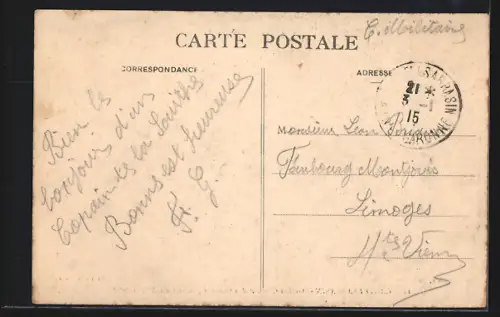 C. Militaire
CARTE POSTALE
CORRESPONDANCE
ADRESSE
SARRASIN
21 *
3 - 1
15
GARONNE
Bien le
bonjour d'un
Copain de la
Bonne est heureuse
F. G.
Monsieur Leon
Faubourg Montjovis
Limoges
Hte Vienne